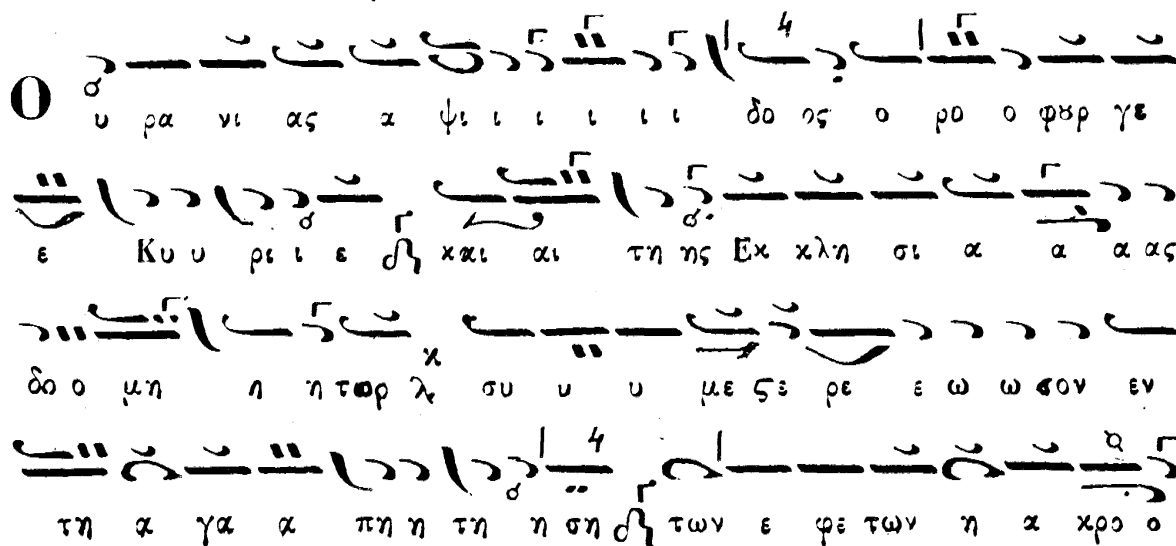 Ο υ ρα νι ας α ψι ι ι ι ι ι δο ος ο ρο ο φȣρ γε
ε Κυ υ ρι ι ε και αι τη ης Εκ κλη σι α α α ας
δο ο μη η η τωρ λ συ υ υ με ϛε ρε ε ω ω σον εν
τη α γα α πη η τη η ση των ε φε των η α κρο ο